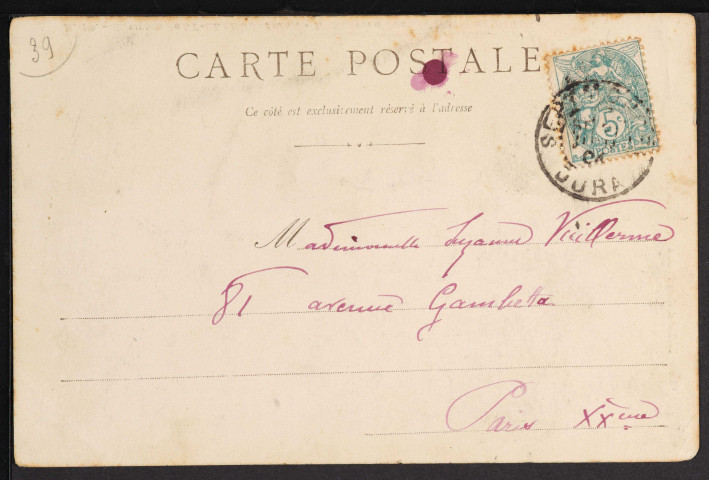 39
CARTE POSTALE
Ce côté est exclusivement réservé à l'adresse
5c
POSTES
JURA
Mademoiselle Suzanne Vuillerme
81 avenue Gambetta
Paris XXème